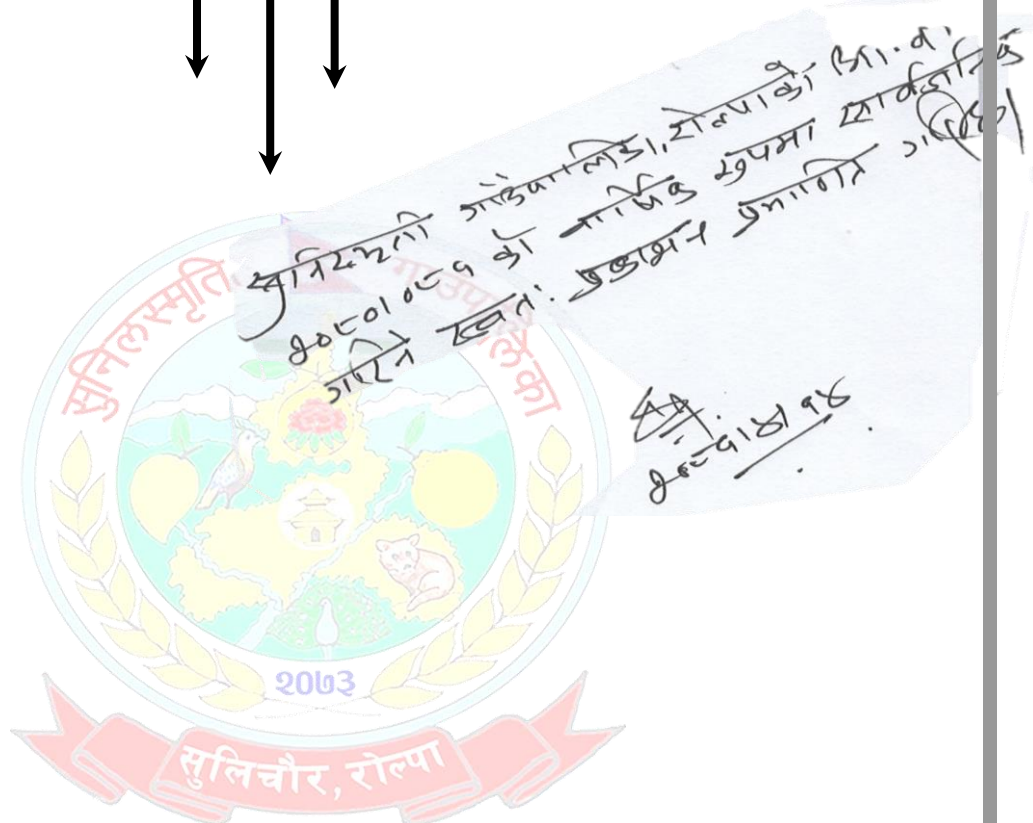 सुनिलस्मृति गाउँपालिका, रोल्पाको आ.व.
२०८०/०८१ को वार्षिक रुपमा सार्वजनिक
गरिने स्वत: प्रकाशन प्रमाणित गर्दछु।
२०८१/४/१४
सुनिलस्मृति गाउँपालिका
२०७३
सुलिचौर, रोल्पा